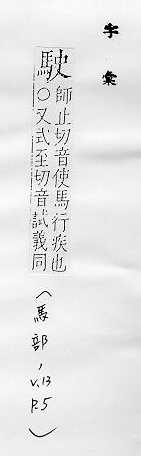 字彙
駛 師止切音使馬行疾也
○又式至切音試義同
(馬部, v.13 P.5)